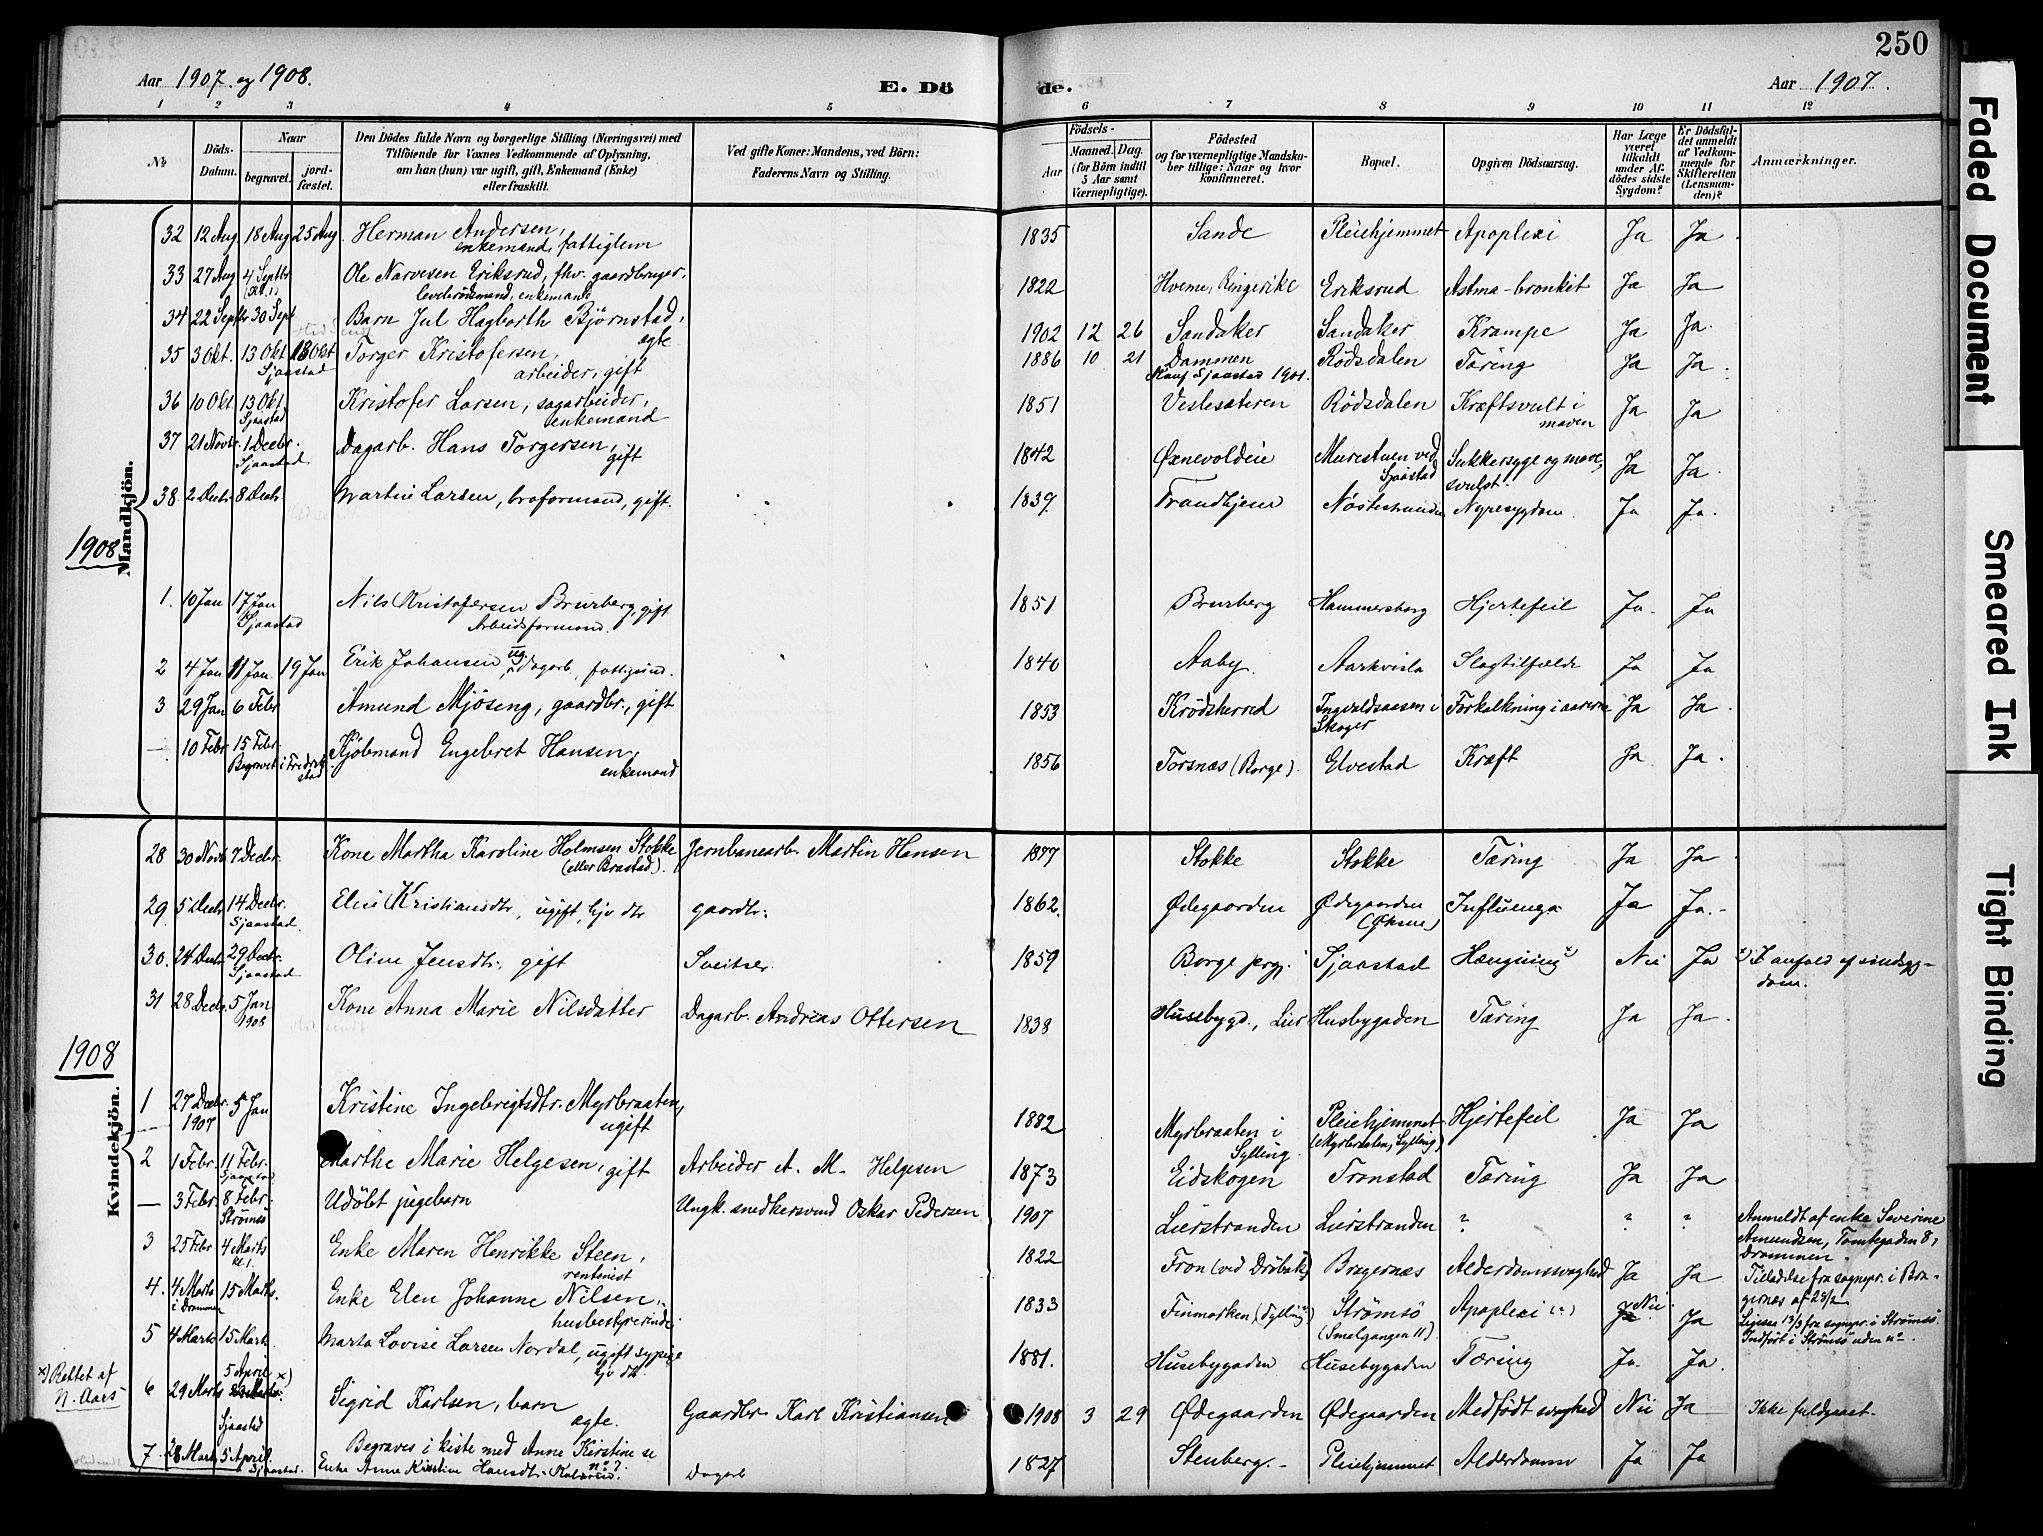 250
Aar 1907. og 1908.
E. Dö
de.
Aar 1907.
1 2 3 4 5 6 7 8 9 10 11 12
No
Döds-Datum.
Naar
begravet.
jord-fæstet.
Den Dödes fulde Navn og borgerlige Stilling (Næringsvei) med
Tilföiende for Voxnes Vedkommende af Oplysning,
om han (hun) var ugift, gift, Enkemand (Enke)
eller fraskilt.
Ved gifte Koner: Mandens, ved Börn:
Faderens Navn og Stilling.
Födsels-
Aar
Maaned. Dag.
(for Börn indtil
5 Aar samt
Værnepligtige).
Födested
og for værnepligtige Mandska-
ber tillige: Naar og hvor
konfirmeret.
Bopæl.
Opgiven Dödsaarsag.
Har Læge
været
tilkaldt
under Af-
dödes sidste
Sygdom?
Er Dödsfal-
det anmeldt
af Vedkom-
mende for
Skifteretten
(Lensman-
den)?
Anmærkninger.
Mandkjön.
32 12 Aug 18 Aug 25 Aug. Herman Andersen, 1835 Sande Pleiehjemmet Apoplexi Ja Ja.
enkemand, fattiglem
33 27 Aug 4 Septbr Ole Narvesen Eriksrud, fhv. gaardbruger, 1822 Hveme, Ringerike Eriksrud Astma-bronkit Ja Ja
enkemand
34 22 Septbr 30 Sept Barn Jul Hagborth Bjørnstad, 1902 12 26 Sandaker Sandaker Krampe Ja Ja.
ægte
35 3 Okt. 13 Okt 13 Okt Torger Kristofersen, 1886 10 21 Dammen Rödsdalen Tæring Ja Ja.
Sjaastad arbeider, gift Konf Sjaastad 1901.
36 10 Okt 13 Okt Kristofer Larsen, sagarbeider, 1851 Veslesæteren Rödsdalen Kræftsvulst i Ja Ja
Sjaastad enkemand maven
37 21 Novbr. 1 Decbr. Dagarb. Hans Torgersen, 1842 Øxnevoldeie Murestuen ved Sukkersyge og mave- Ja Ja.
Sjaastad gift Sjaastad svulst.
38. 2 Decbr 8 Decbr. Martin Larsen, broformand, gift. 1839. Trondhjem Nøstestranden Nyresygdom. Ja Ja.
1908
1. 10 Jan 17 Jan Nils Kristofersen Brurberg, gift 1851 Brurberg Hammersborg Hjertefeil Ja. Ja
Sjaastad Arbeidsformand.
2 4 Jan. 11 Jan. 19 Jan Erik Johansen ug. dagarb, fattigund. 1840 Aaby. Aarkvisla Slagtilfælde Ja Ja
3 29 Jan 6 Febr Amund Mjøseng, gaardbr., gift 1853 Krødsherred Ingvaldsaasen i Forkalkning i aarerne Ja Ja.
Skoger
— 10 Febr. 15 Febr. Kjøbmand Engebret Hansen, 1856 Torsnæs (Borge). Elvestad Kræft Ja Ja.
Begravet i Fredrikstad enkemand
Kvindekjön.
28 30 Novb. 7 Decbr. Kone Martha Karoline Holmsen Stokke Jernbanearb. Martin Hansen 1877 Stokke Stokke Tæring Ja Ja
(eller Brastad).
29 5 Decbr 14 Decbr. Elise Kristiansdtr, ugift, hjv dtr gaardbr. 1862. Ødegaarden Ødegaarden Influenza Ja Ja.
Sjaastad. (Øksne)
30. 24 Decbr 29 Decbr. Oline Jensdtr., gift Sveitser. 1859 Borge prgj. Sjaastad Hængning x) Nei Ja x) I anfald af sindssyg-
Sjaastad dom.
31 28 Decbr. 5 Jan Kone Anna Marie Nilsdatter Dagarb. Andreas Ottersen 1838 Husebygd., Lier Husbygaden Tæring Ja Ja.
1908
1908
1 27 Decbr. 5 Jan Kristine Ingebrigtsdtr. Myrbraaten, 1882 Myrbraaten i Pleiehjemmet Hjertefeil Ja Ja
1907 ugift Sylling. (Myrbraaten, Sylling)
2 1 Febr. 11 Febr. Marthe Marie Helgesen, gift Arbeider A. M. Helgesen 1873 Eidskogen Tronstad Tæring Ja Ja
Sjaastad
— 3 Febr. 8 Febr. Udöbt pigebarn Ungk. snedkersvend Oskar Pedersen 1907 Lierstranden Lierstranden ? ? ? Anmeldt af enke Severine
Strømsö Amundsen, Tomtegaden 8,
Drammen.
3 25 Febr 4 Marts Enke Maren Henrikke Steen, 1822 Fron (ved Drøbak) Bragernæs Alderdomssvaghed Ja Ja Tilladelse fra sognepr. i Bra-
Kl. 1. rentenist gernæs af 28/2
4. 4 Marts 15 Marts. Enke Elen Johanne Nilsen, 1833 Finmarken Strömsö Apoplexi (?) Nei Ja Ligesaa 13/3 fra sognepr. i Strömsö.
i Drammen husbestyrerinde. (Smalgangen 11). Indfört i Strömsö uden no.
5 4 Marts 15 Mart. Marta Lovise Larsen Nordal, ugift sypige 1881. Husebygaden Husebygaden Tæring Ja. Ja.
hjv dtr.
x) Rettet af
N. Aars
6 29 Marts 5 April x) Sigrid Karlsen, barn Gaardbr Karl Kristiansen 1908 3 29 Ødegaarden Ødegaarden Medfödt svaghed Nei Ja Ikke fuldgaaet.
Sjaastad ægte.
Begraves i kiste med Anne Kirstine se no 7.
7. 28 Marts 5 April Enke Anne Kirstine Hansdtr. Dagarb 1827 Stenberg. Pleiehjemmet Alderdomssv Ja Ja
Sjaastad.
Faded Document
Smeared Ink
Tight Binding